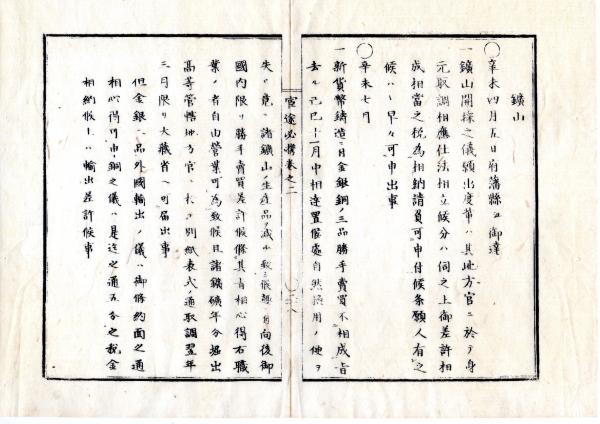 鑛山
◯辛未四月五日府藩縣ヱ御達
一鑛山開採之儀願出度輩ハ其地方官ニ於テ身
元取調相應仕法相立候分ハ伺之上御差許相
成相當之税為相納請負可申付候条願人有之
候ハヽ早々可申出事
◯辛未七月
一新貨幣鋳造ニ付金銀銅ノ三品勝手賣買不相成旨
去ル己巳十一月中相達置候處自然採用ノ便ヲ
官途必携巻之二
失ヒ竟ニ諸鑛山ノ生産品ヲ減シ
候 自向後御
國内限リ勝手賣買差許候條其旨相心得右職
業ノ者自由營業可為致候且諸鑛礦年分掘出
高等管轄地方官ニ於テ別紙表式ノ通取調翌年
三月限リ大藏省ヘ可届出事
但金銀二品外國輸出ノ儀ハ御條約面之通
相心得可申銅之儀ハ是迄之通五分之税金
相納候上ハ輸出差許候事